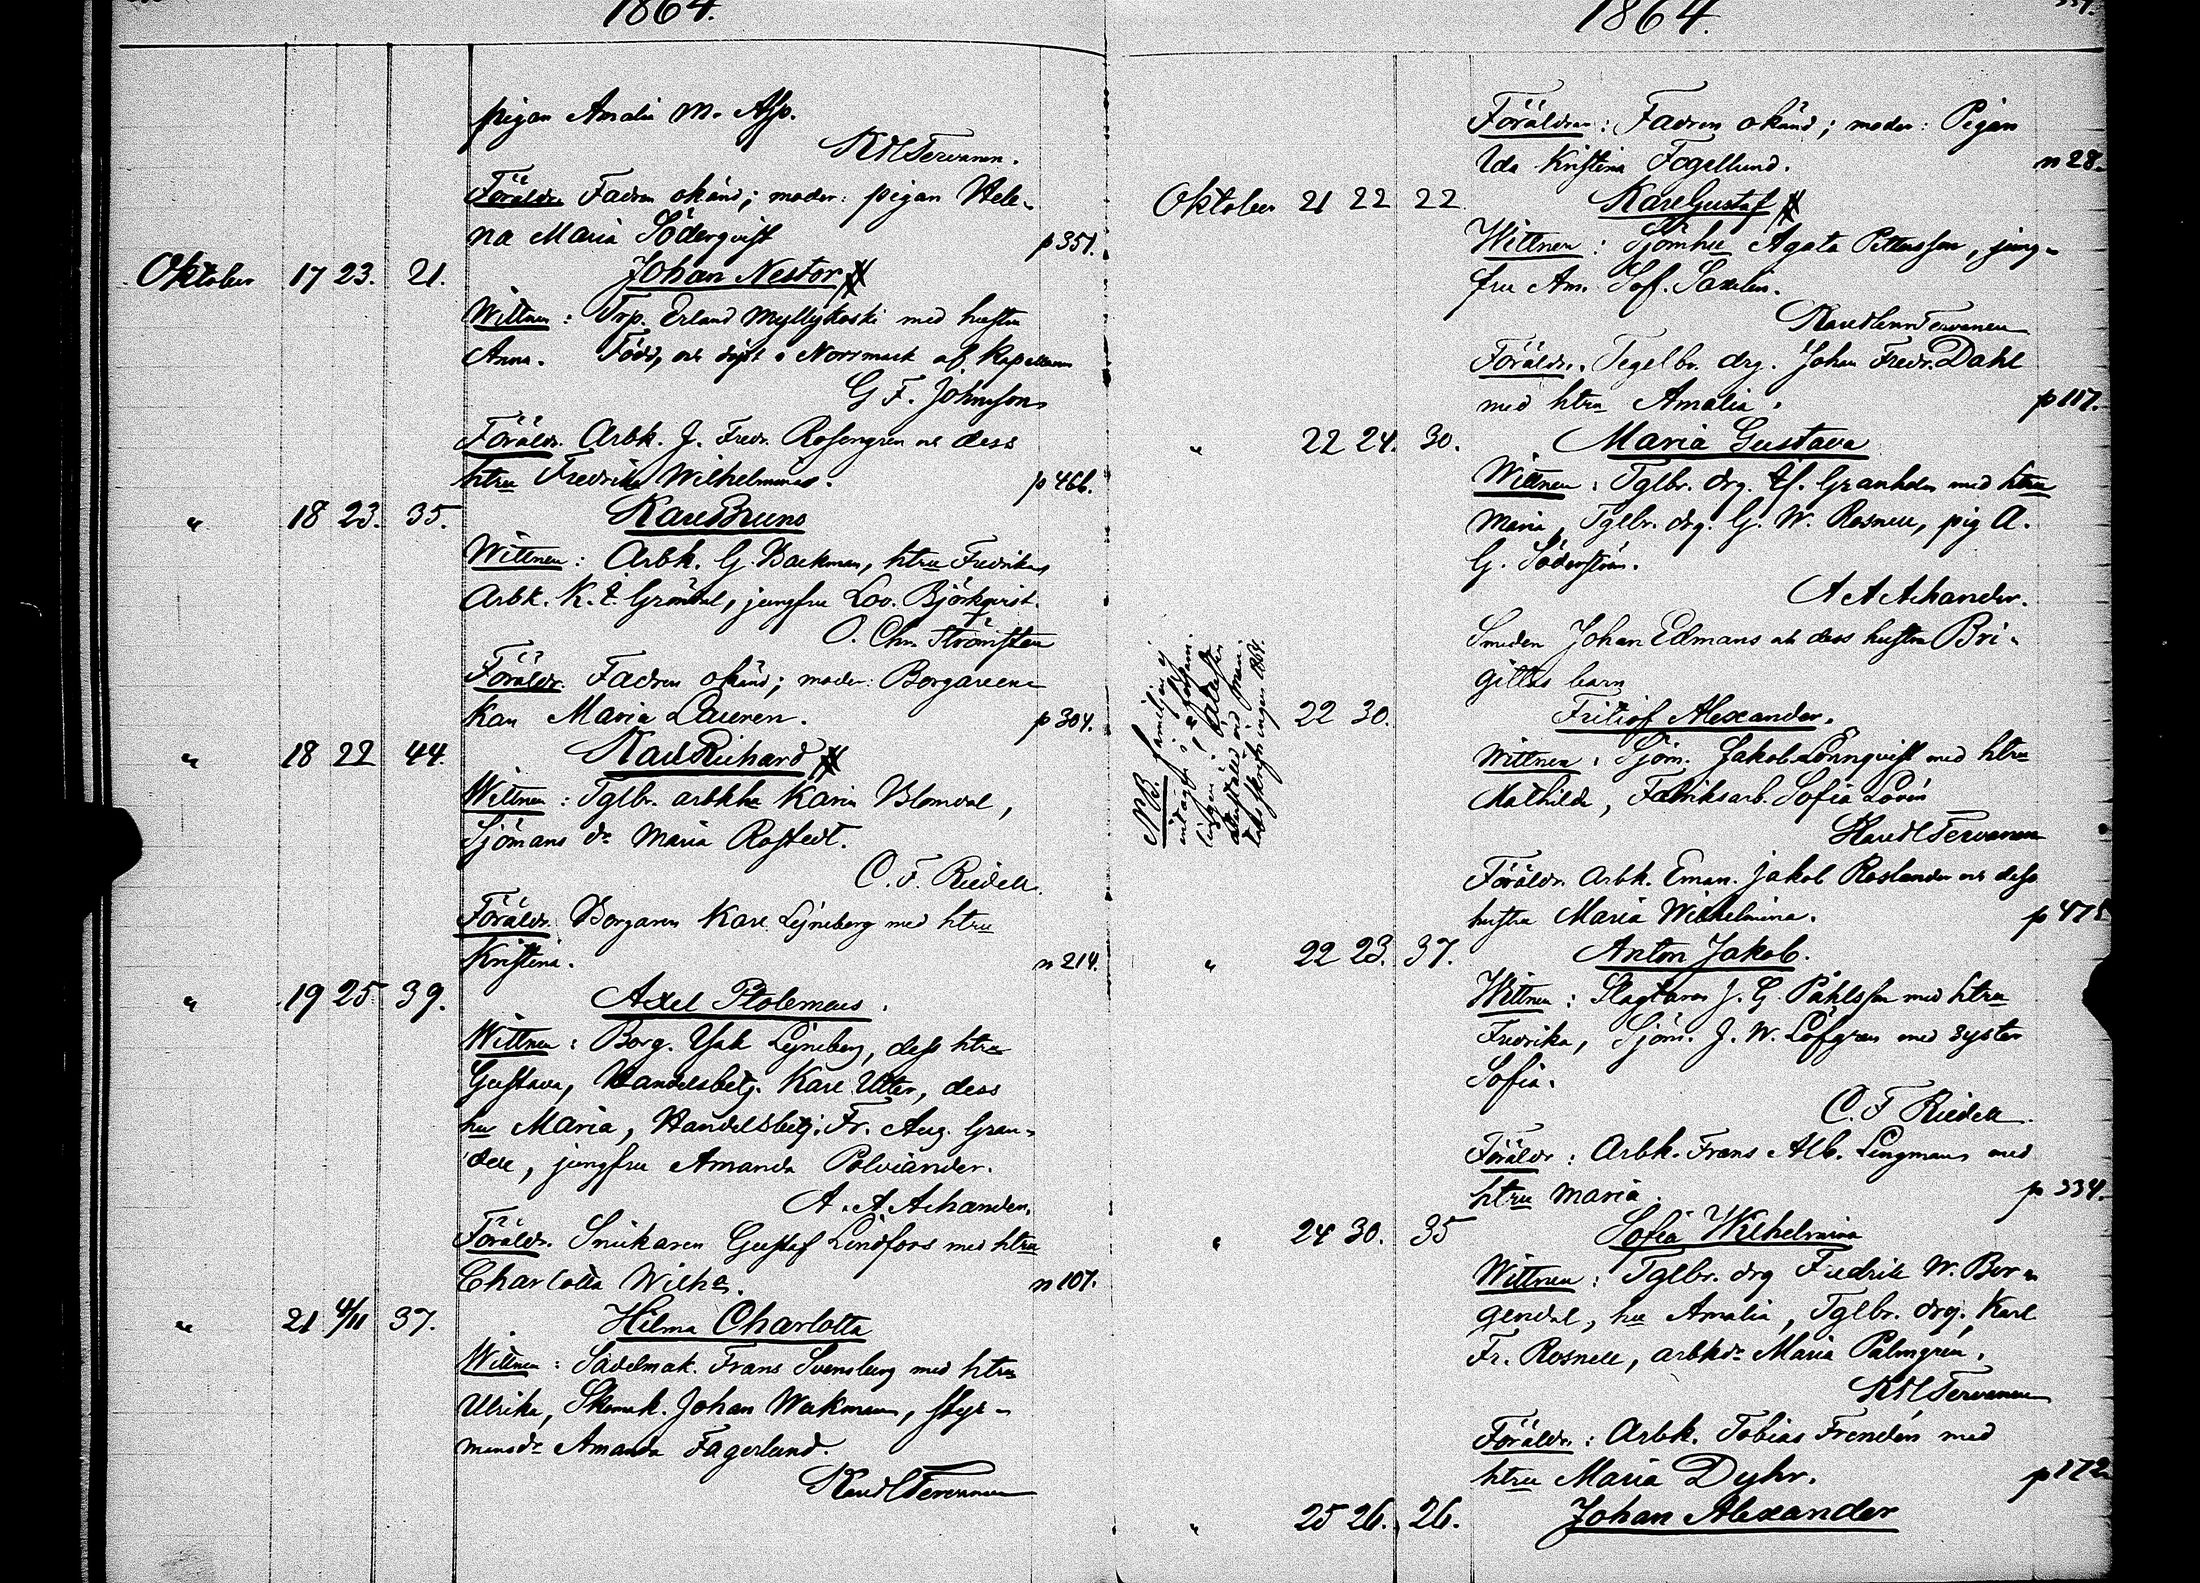 1864.
pigan Amalia M. Asp.
K H Tervanen.
Föräldr. Fadren okänd; moder: pigan Hele-
na Maria Söderqvist p 351.
Oktober 17 23. 21. Johan Nestor
Wittnen: Trp. Erland Myllykoski med hustru
Anna. Född och döpt i Norrmark af Kapellanen
G F. Johnsson
Föräldr. Arbk. J. Fredr. Rosengren och dess
htru Fredrika Wilhelmina. p 466.
" 18 23. 35. Karl Bruno
Wittnen: Arbk. G. Backman, htru Fredrika,
Arbk. K. E. Gröndal, jungfru Lov. Björkqvist.
O. Chr. Strömsten
Föräldr. Fadren okänd; moder: Borgareen-
kan Maria Lauren. p 304.
" 18 22 44. Karl Richard
Wittnen: Tglbr. arbkhu Karin Blomdal,
Sjömans dr Maria Rostedt.
C. F. Riedell.
Föräldr. Borgaren Karl Lejneberg med htru
Kristina. n 214.
" 19 25 39. Axel Ptolemaus.
Wittnen: Borg. Isak Lejneberg, dess htru
Gustava, Handelsbetj. Karl Utter, dess
hu Maria, Handelsbetj. Fr. Aug. Gran-
dell, jungfru Amanda Polviander.
A. A. Achander.
Föräldr. Snickaren Gustaf Lindfors med htru
Charlotta Wilha. n 107.
" 21 4/11 37. Hilma Charlotta
Wittnen: Sadelmak. Frans Svensberg med htru
Ulrika, Skomak. Johan Wakman, styr-
mansdr Amanda Fagerlund.
Karl H Tervanen
1864.
Föräldrar: Fadren okänd; moder: Pigan
Ida Kristina Fogellund. n 28.
Oktober 21 22 22 Karl Gustaf
Wittnen: Sjömhu Agata Pettersson, jung-
fru Am. Sof. Saxelin.
Karl Henr Tervanen
Föräldr. Tegelbr. drg. Johan Fredr. Dahl
med htru Amalia. p 117.
" 22 24. 30. Maria Gustava
Wittnen: Tglbr. drg. Granholm med htru
Maria, Tglbr. drg. G. W. Rosnell, pig A.
G. Söderström.
A A Achander.
Smeden Johan Edmans och dess hustru Bri-
gittas barn
22 30. Fritiof Alexander.
NB. familjen ej
intagen i
Wittnen: Sjöm. Jakob Lönnqvist med htru
Mathilda, Fabriksarb. Sofia Lovén
Karl H Tervanen
Föräldr. Arbk. Eman. Jakob Roslander och dess
hustru Maria Wilhelmina. p 475
" 22 23. 37. Anton Jakob.
Wittnen: Slagtaren J. G. Påhlsson med htru
Fredrika, Sjöm. J. W. Löfgren med syster
Sofia.
C. F Riedell.
Föräldr: Arbk. Frans Alb. Lingman med
htru Maria. p 334.
" 24 30. 35 Sofia Wilhelmina
Wittnen: Tglbr. drg Fredrik W. Ber-
gendal, hu Amalia, Tglbr. drg. Karl
Fr. Rosnell, arbkdr Maria Palmgren.
K H Tervanen
Föräldr: Arbk. Tobias Frendén med
htru Maria Dyhr. p 172
" 25 26. 26. Johan Alexander